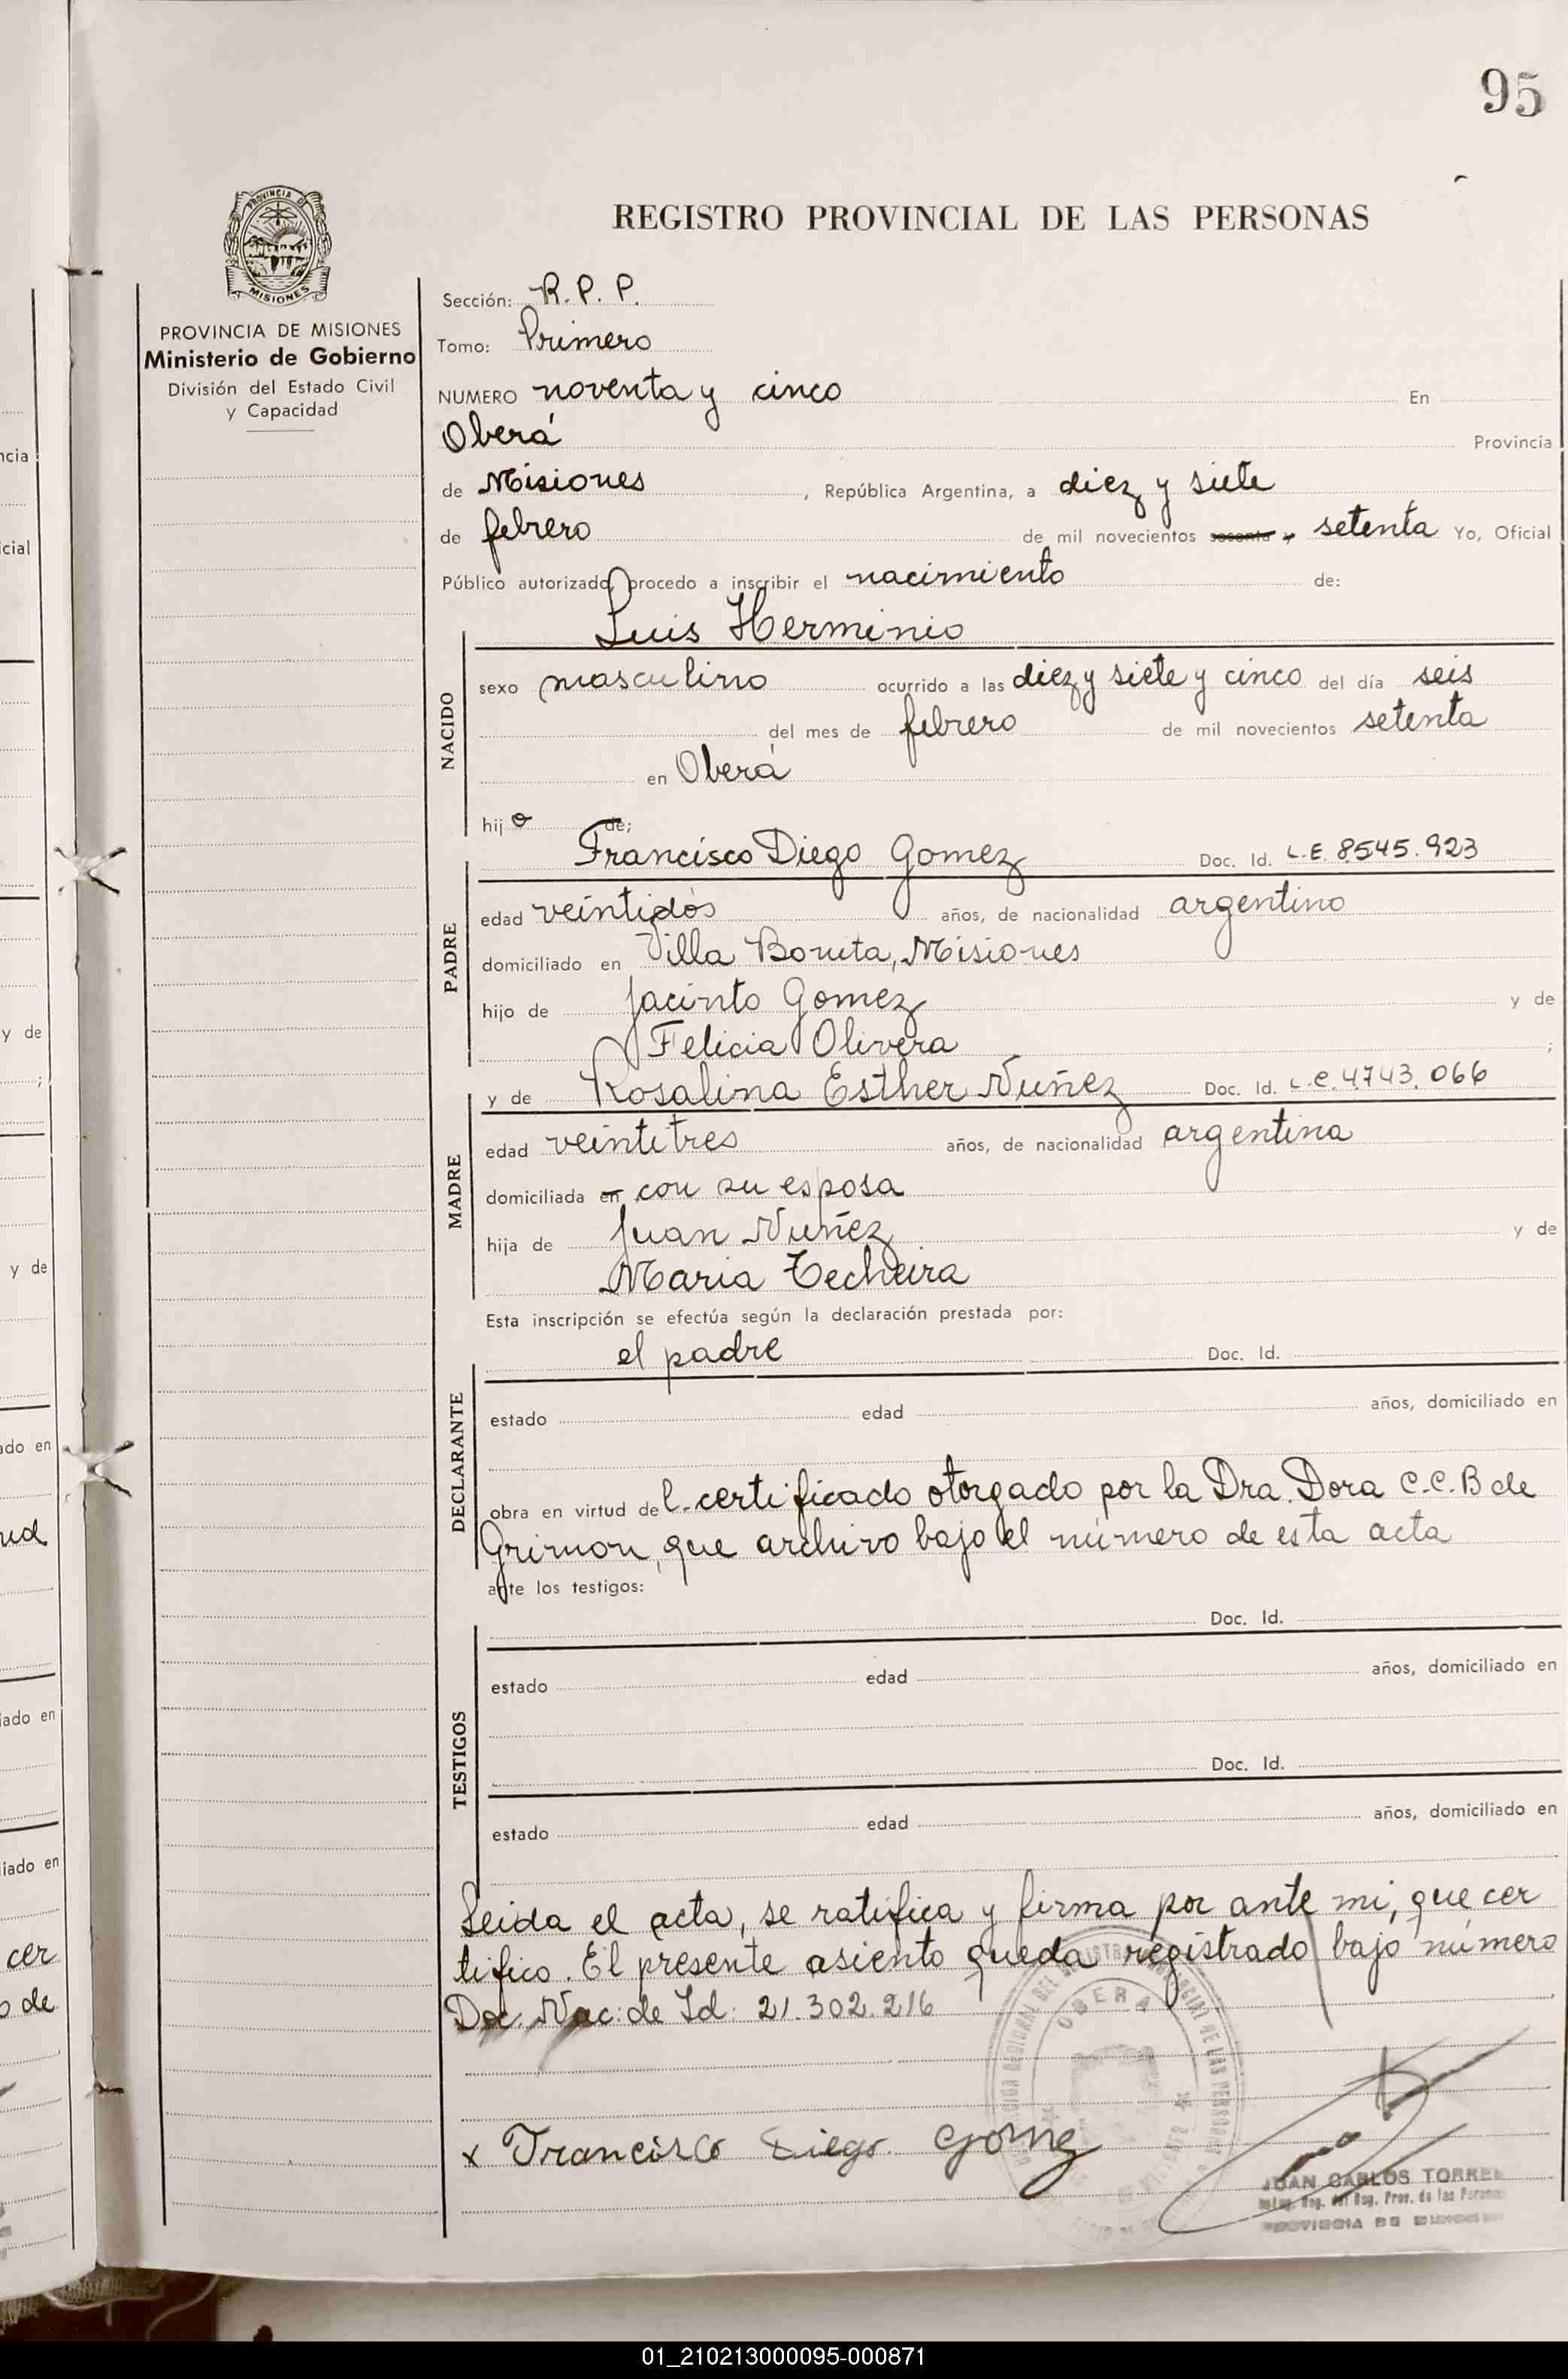 95
PROVINCIA DE
MISIONES
PROVINCIA DE MISIONES
Ministerio de Gobierno
División del Estado Civil
y Capacidad
REGISTRO PROVINCIAL DE LAS PERSONAS
Sección: R.P.P.
Tomo: Primero
NUMERO noventa y cinco En
Oberá Provincia
de Misiones, República Argentina, a diez y siete
de febrero de mil novecientos sesenta y setenta Yo, Oficial
Público autorizado, procedo a inscribir el nacimiento de:
Luis Herminio
NACIDO
sexo masculino ocurrido a las diez y siete y cinco del día seis
del mes de febrero de mil novecientos setenta
en Oberá
hijo de;
Francisco Diego Gomez Doc. Id. L.E. 8545.923
PADRE
edad veintidós años, de nacionalidad argentino
domiciliado en Villa Bonita, Misiones
hijo de Jacinto Gomez y de
Felicia Olivera ;
y de Rosalina Esther Nuñez Doc. Id. L.C. 4743.066
MADRE
edad veintitres años, de nacionalidad argentina
domiciliada en con su esposo
hija de Juan Nuñez y de
Maria Techeira
Esta inscripción se efectúa según la declaración prestada por:
el padre Doc. Id.
DECLARANTE
estado edad años, domiciliado en
obra en virtud del certificado otorgado por la Dra. Dora C.C.B de
Grimon, que archivo bajo el número de esta acta
ante los testigos:
Doc. Id.
TESTIGOS
estado edad años, domiciliado en
Doc. Id.
estado edad años, domiciliado en
Leida el acta, se ratifica y firma por ante mi, que cer
tifico. El presente asiento queda registrado bajo número
Doc. Nac. de Id: 21.302.216
OBERA
x Francisco Diego Gomez
JUAN CARLOS TORRES
Reg. Prov. de las Personas
PROVINCIA DE MISIONES
ncia
icial
y de
;
y de
ado en
ud
iado en
iado en
cer
o de
01_210213000095-000871